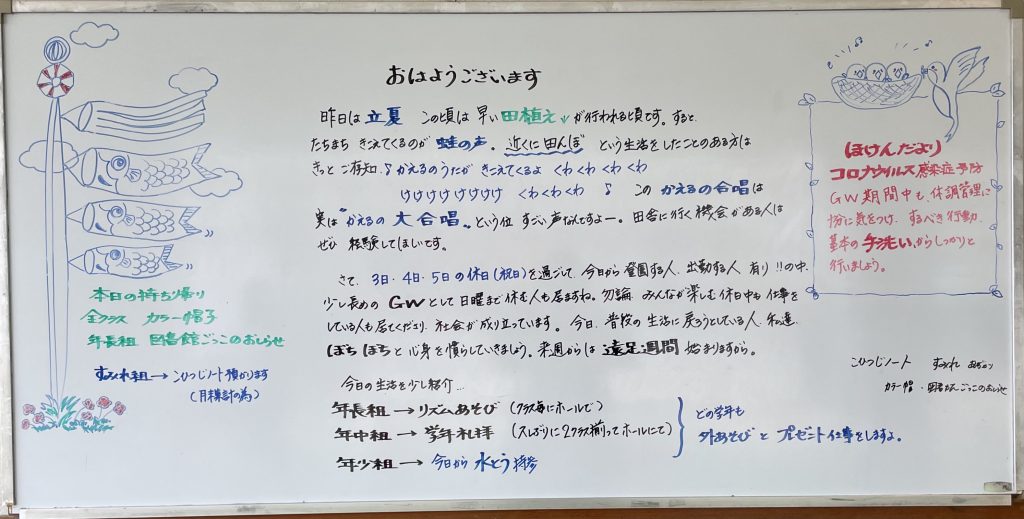 おはようございます
昨日は立夏 この頃は早い田植えが行われる頃です。すると、
たちまちきこえてくるのが蛙の声。近くに田んぼという生活をしたことのある方は
きっとご存知♪かえるのうたがきこえてくるよ くわくわくわくわ
けけけけけけけけ くわくわくわ♪ このかえるの合唱は
実は"かえるの大合唱"という位すごい声なんですよー。田舎に行く機会がある人は
ぜひ経験してほしいです。
さて、3日・4日・5日の休日(祝日)を過ごして、今日から登園する人、出勤する人有り!!の中、
少し長めのGWとして日曜まで休む人も居ますね。勿論、みんなが楽しむ休日中も仕事を
している人も居てくださり、社会が成り立っています。今日、普段の生活に戻ろうとしている人、私達、
ぼちぼちと心身を慣らしていきましょう。来週からは遠足週間始まりますから。
今日の生活を少し紹介…
年長組→リズムあそび(クラス毎にホールで)
年中組→学年礼拝(久しぶりに2クラス揃ってホールにて)
年少組→今日から水とう持参
どの学年も
外あそびとプレゼント仕事をしますよ。
本日の持ち帰り
全クラス カラー帽子
年長組 図書館ごっこのおしらせ
すみれ組→こひつじノート預かります
(月積計の為)
ほけんだより
コロナウイルス感染症予防
GW期間中も、体調管理に
十分に気をつけ、するべき行動、
基本の手洗い、からしっかりと
行いましょう。
こひつじノート すみれ あずかり
カラー帽・図書館ごっこのおしらせ